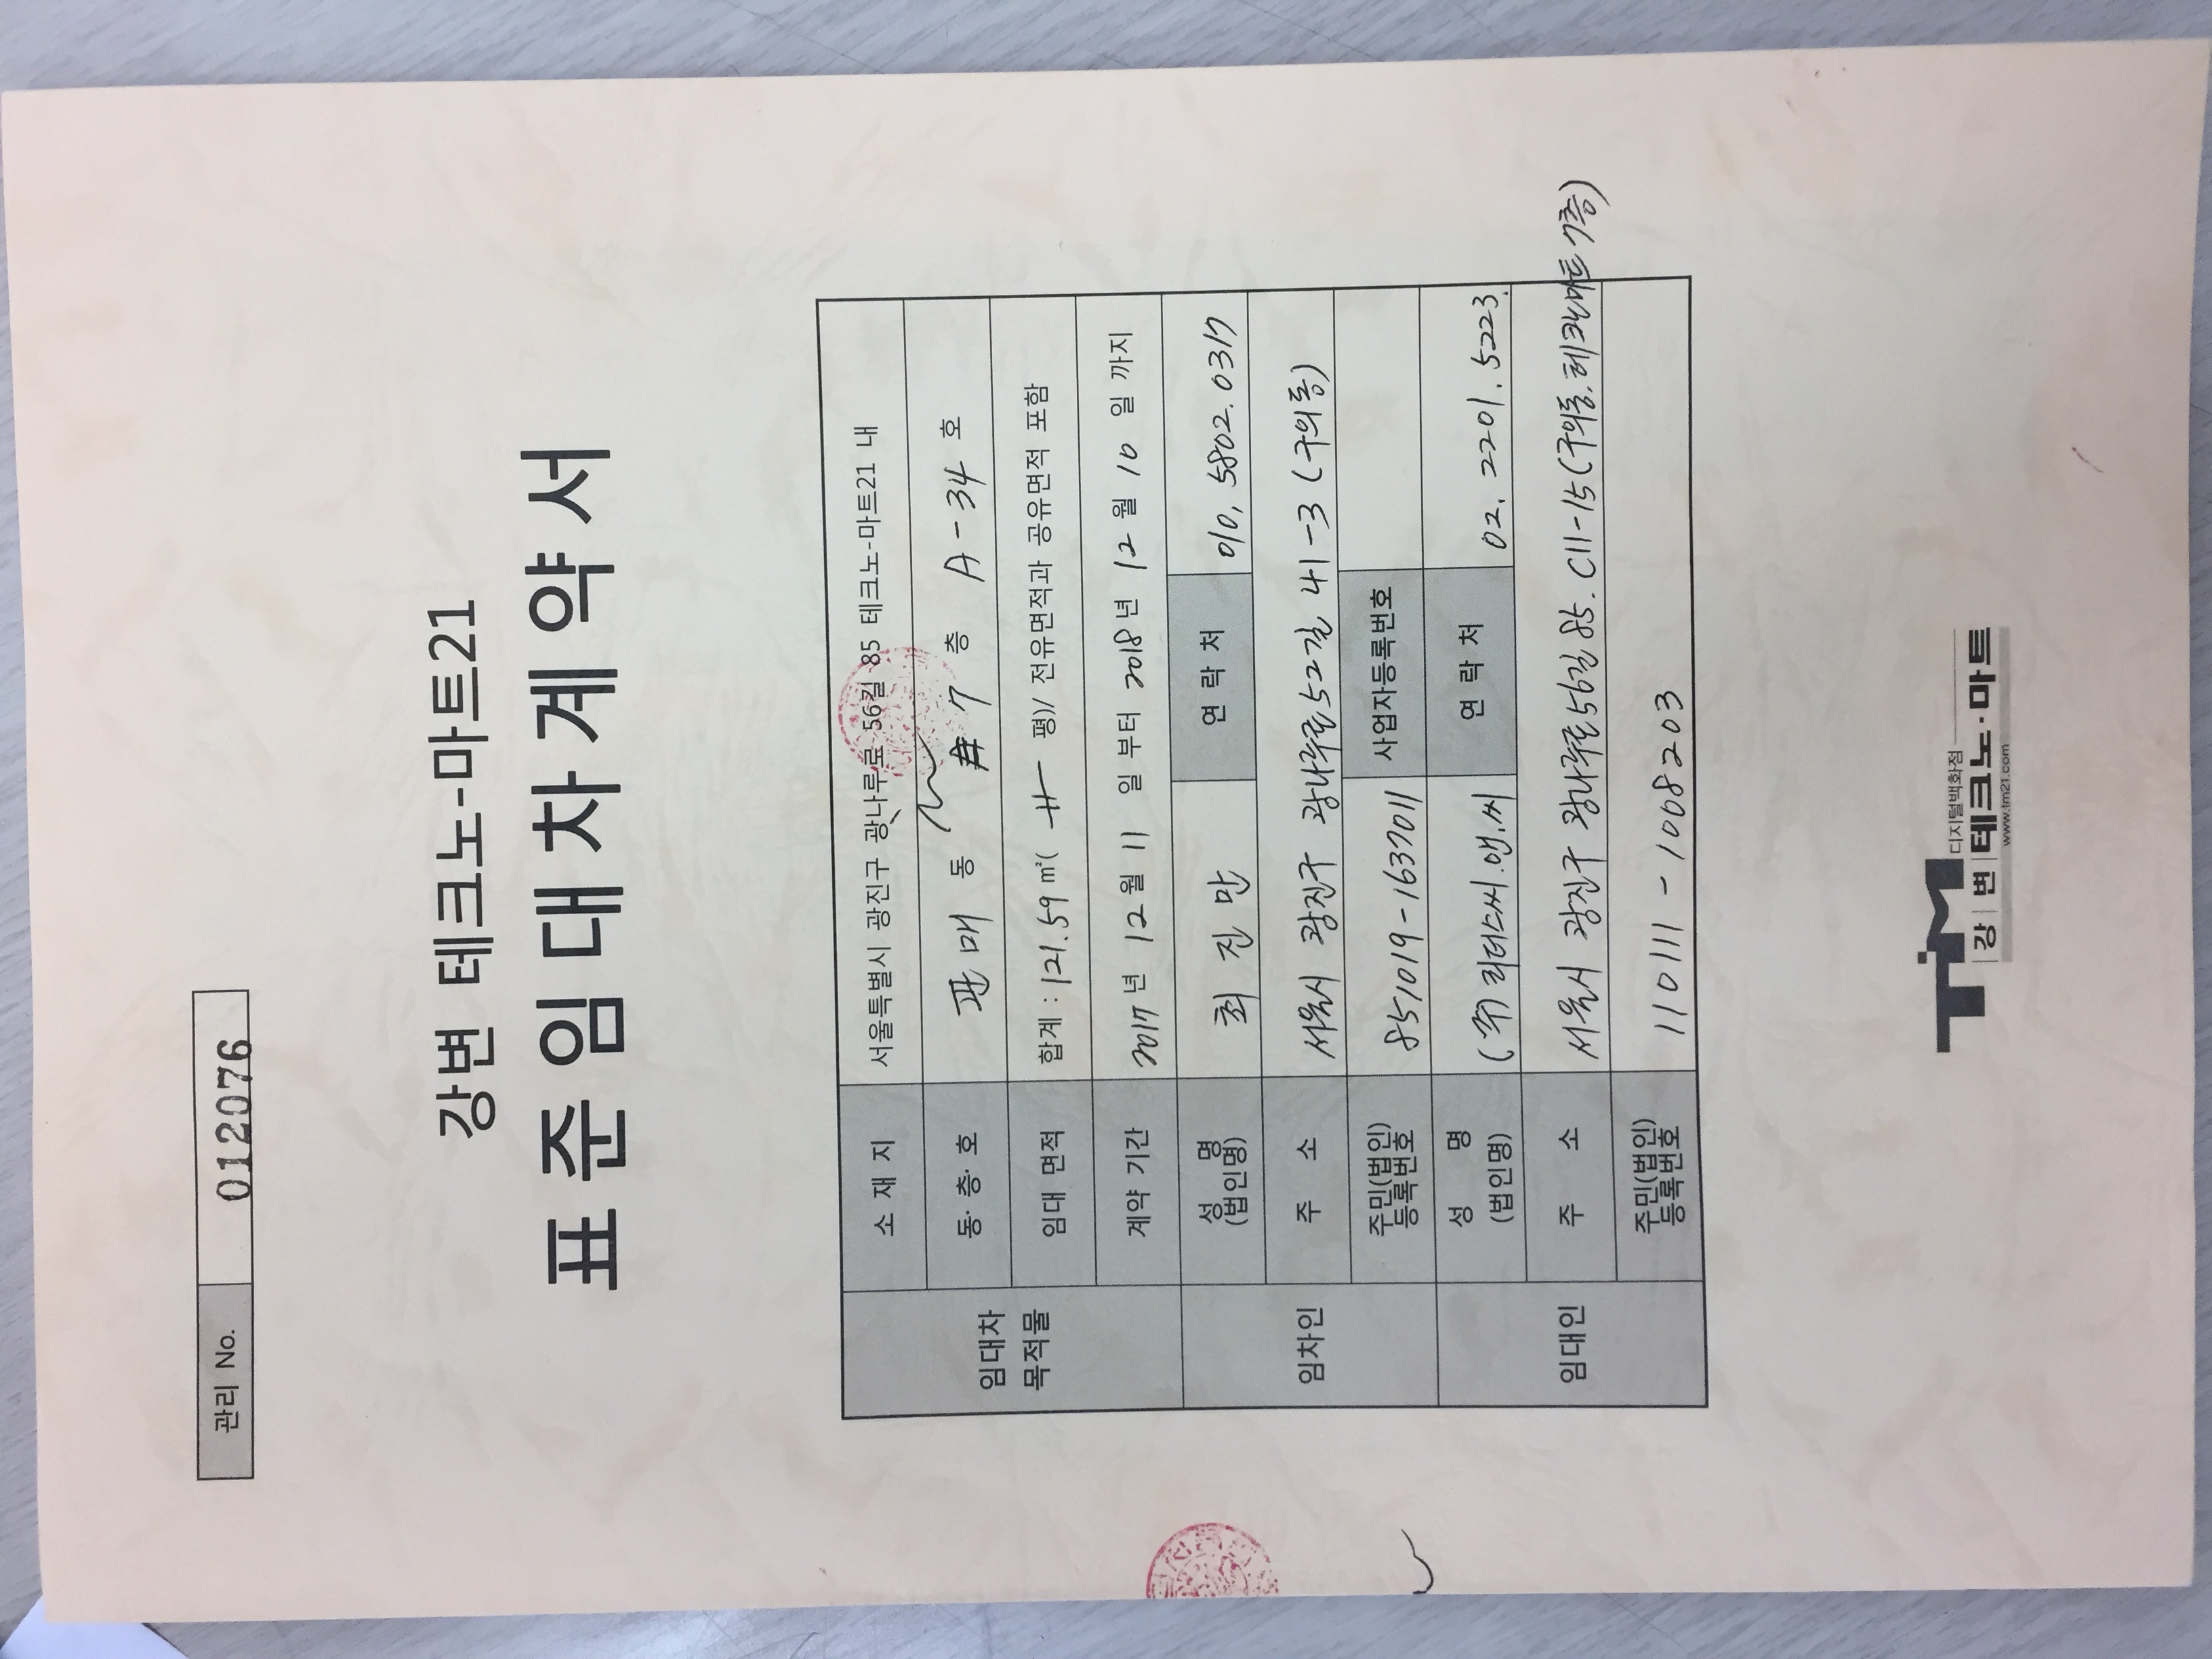 관리 No. 012076
강변 테크노-마트21
표준임대차계약서
임대차 목적물
소 재 지 서울특별시 광진구 광나루로 56길 85 테크노-마트21 내
동·층·호 판매 동 7 층 A-34 호
임대 면적 합계 : 121.59 ㎡( 평)/ 전유면적과 공유면적 포함
계약 기간 2017년 12월 11일 부터 2018년 12월 10일 까지
임차인
성 명 (법인명) 최진만 연 락 처 010. 5802. 0317
주 소 서울시 광진구 광나루로52길 41-3 (구의동)
주민(법인) 등록번호 851019-1637011 사업자등록번호
임대인
성 명 (법인명) (주)리더스씨.앤.씨 연 락 처 02. 2201. 5223.
주 소 서울시 광진구 광나루로56길 85. C11-15(구의동.테크노마트 7층)
주민(법인) 등록번호 110111-1008203
TM 디지털백화점
강|변|테크노·마트
www.tm21.com